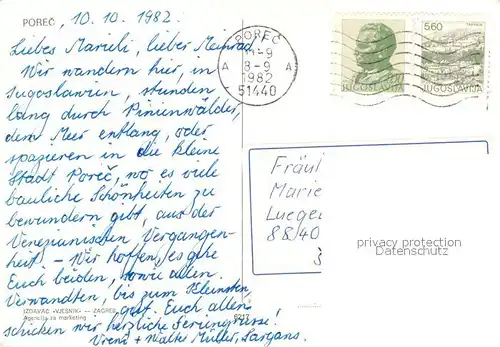 POREČ, 10.10.1982.
Liebes Marieli, lieber Meinrad,
Wir wandern hier, in
Jugoslawien, stunden
lang durch Pinienwälder,
dem Meer entlang, oder
spazieren in die kleine
Stadt Poreč, wo es viele
bauliche Schönheiten zu
bewundern gibt, aus der
Venezianischen Vergangen-
heit. – Wir hoffen, es gehe
Euch beiden, sowie allen
Verwandten, bis zum Kleinsten,
gut. Euch allen
schicken wir herzliche Feriengrüsse!
Vreni + Walter Müller, Sargans.
IZDAVAČ »VJESNIK« — ZAGREB
Agencija za marketing
6217
POREČ
8-9
1982
A A
51440
JUGOSLAVIJA
5.60
JUGOSLAVIJA
Fräul
Marie
Luege
88/40
privacy protection
Datenschutz